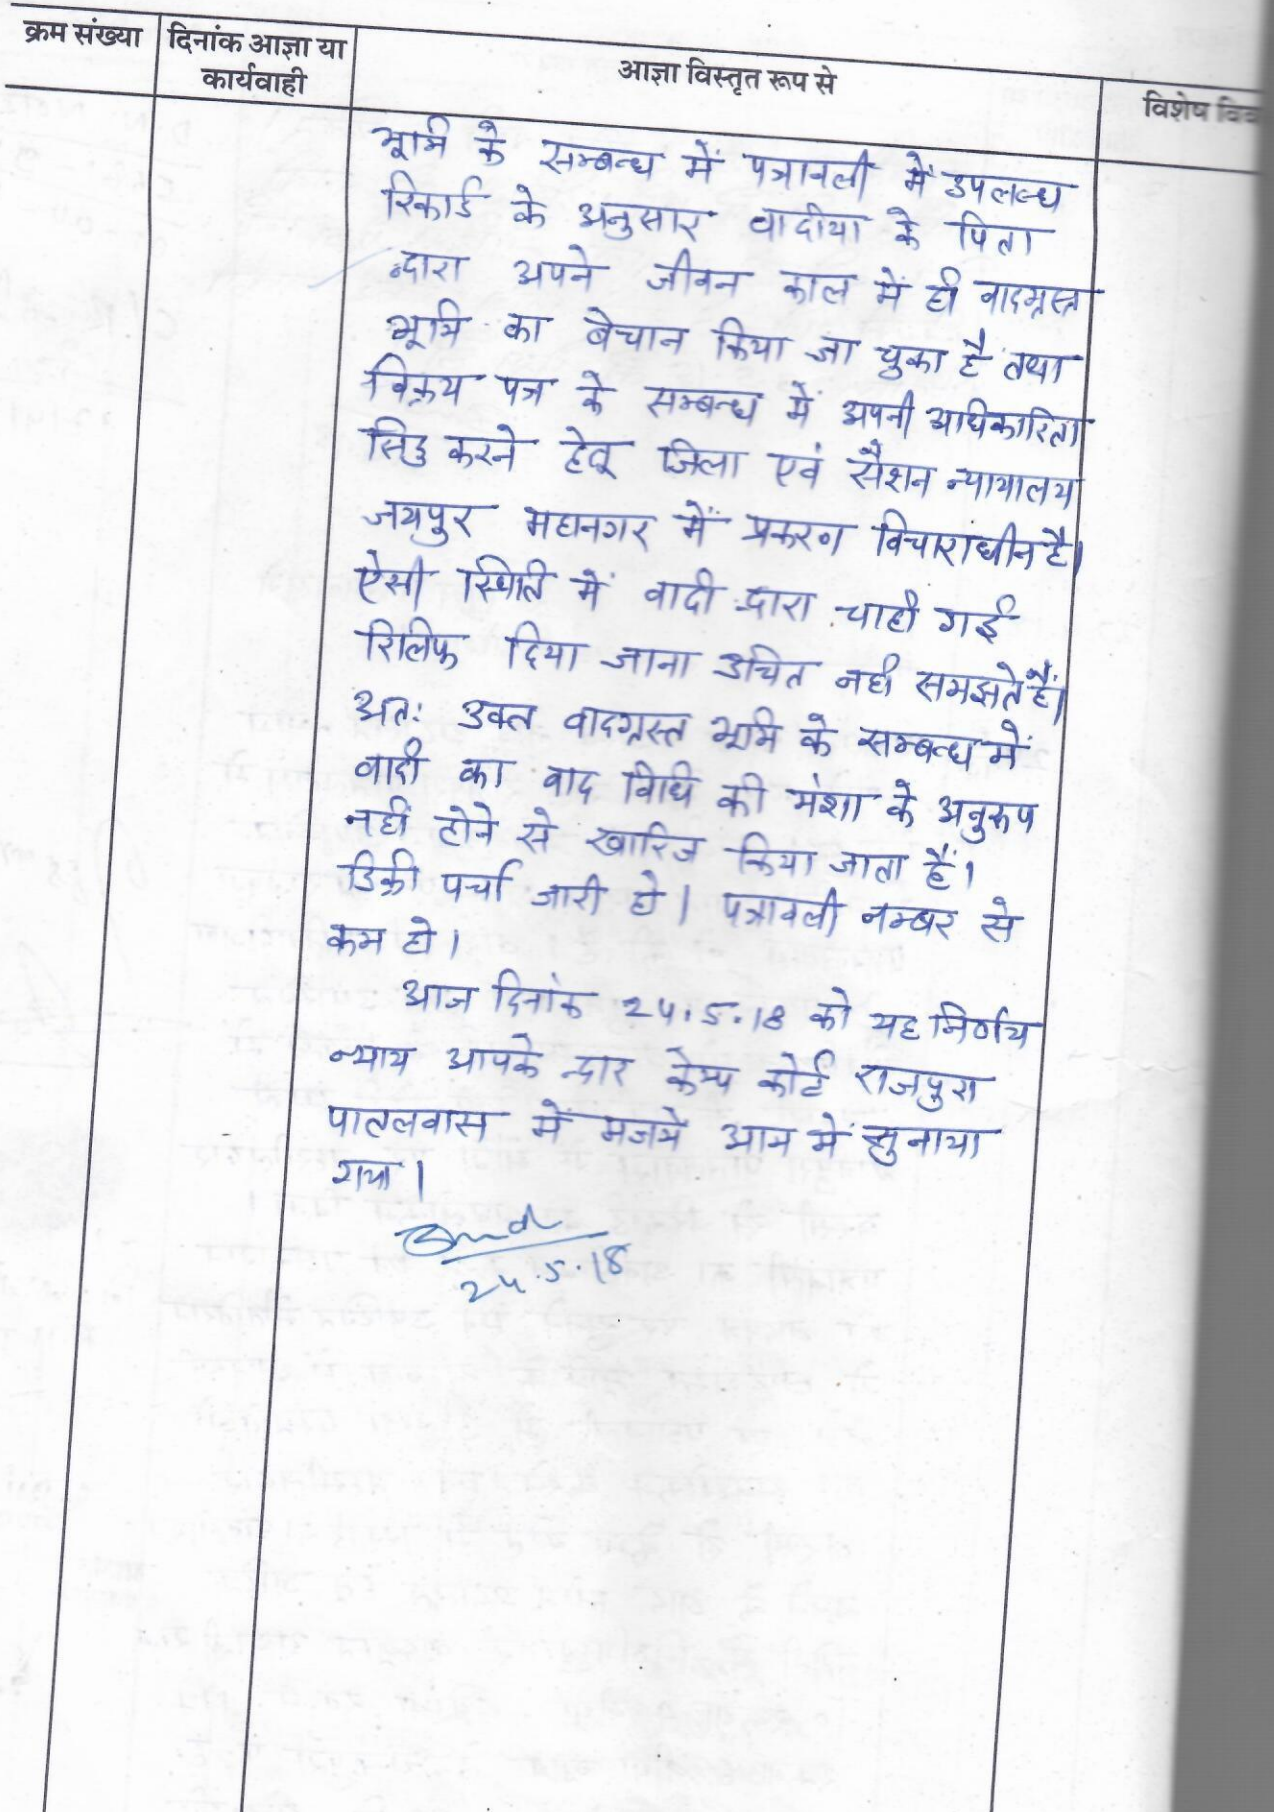 क्रम संख्या
दिनांक आज्ञा या
कार्यवाही
आज्ञा विस्तृत रूप से
विशेष विव
भूमि के सम्बन्ध में पत्रावली में उपलब्ध
रिकार्ड के अनुसार वादीया के पिता
द्वारा अपने जीवन काल में ही वादग्रस्त
भूमि का बेचान किया जा चुका है तथा
विक्रय पत्र के सम्बन्ध में अपनी अधिकारिता
सिद्ध करने हेतू जिला एवं सैशन न्यायालय
जयपुर महानगर में प्रकरण विचाराधीन है।
ऐसी स्थिति में वादी द्वारा चाही गई
रिलिफ दिया जाना उचित नहीं समझते हैं।
अतः उक्त वादग्रस्त भूमि के सम्बन्ध में
वादी का वाद विधि की मंशा के अनुरूप
नहीं होने से खारिज किया जाता हैं।
डिक्री पर्चा जारी हो। पत्रावली नम्बर से
कम हो।
आज दिनांक 24.5.18 को यह निर्णय
न्याय आपके द्वार केम्प कोर्ट राजपुरा
पातलवास में मजमे आम में सुनाया
गया।
24.5.18